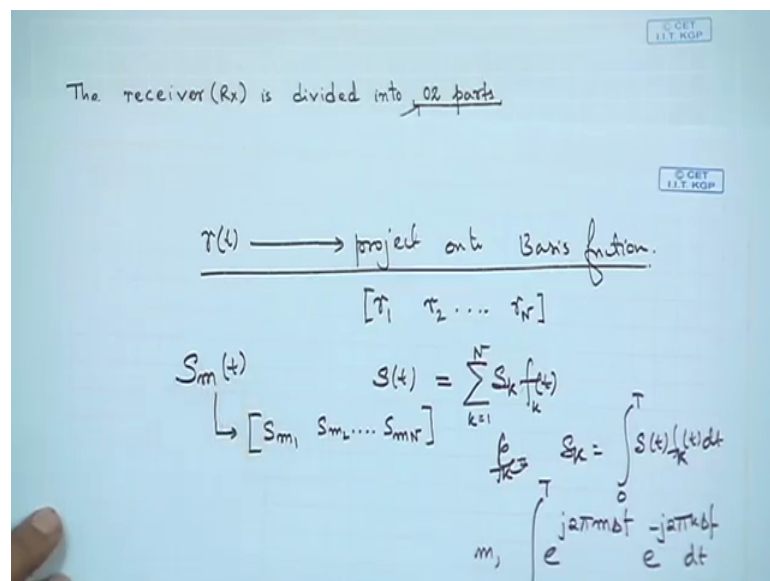 © CET
I.I.T. KGP
The receiver (Rx) is divided into 02 parts
© CET
I.I.T. KGP
r(t) ⟶ project onto Basis fnction.
[r₁ r₂ .... r_N]
S_m(t) S(t) = ∑_{k=1}^{N} S_k f_k(t)
↳ [S_{m1} S_{m2} .... S_{mN}]
S_k = ∫_0^T S(t) f_k(t) dt
m, ∫^T e^{j2πmΔf} e^{-j2πkΔf} dt